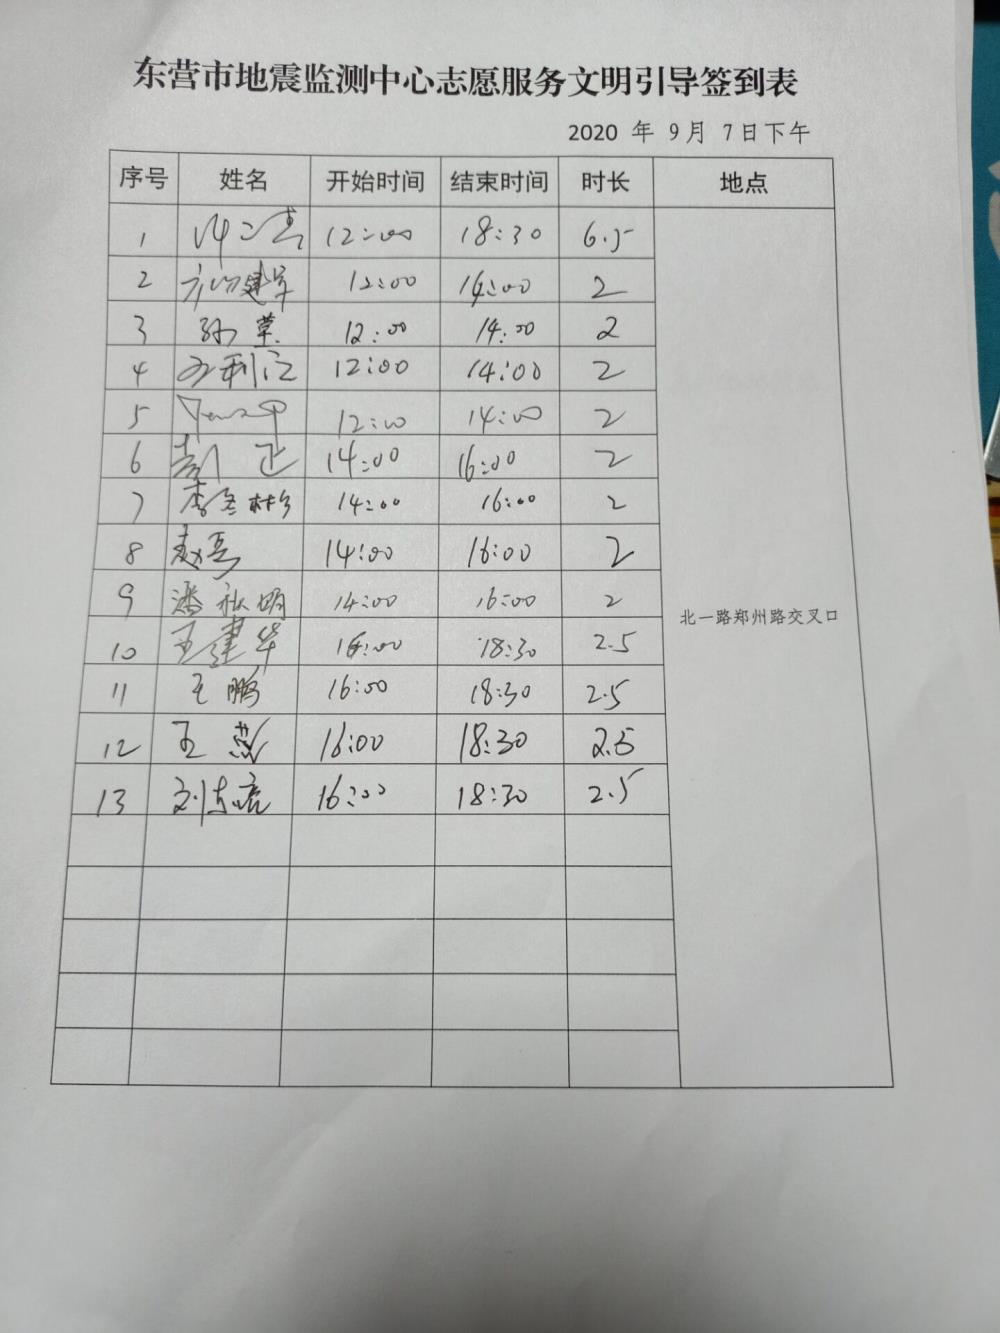 东营市地震监测中心志愿服务文明引导签到表
2020 年 9月 7日下午
序号 姓名 开始时间 结束时间 时长 地点
1 12:00 18:30 6.5
2 建军 12:00 14:00 2
3 孙 12:00 14:00 2
4 利江 12:00 14:00 2
5 12:00 14:00 2
6 彭 正 14:00 16:00 2
7 李冬彬 14:00 16:00 2
8 赵亮 14:00 16:00 2
9 潘秋明 14:00 16:00 2
北一路郑州路交叉口
10 王建华 16:00 18:30 2.5
11 王鹏 16:00 18:30 2.5
12 王燕 16:00 18:30 2.5
13 刘东亮 16:00 18:30 2.5